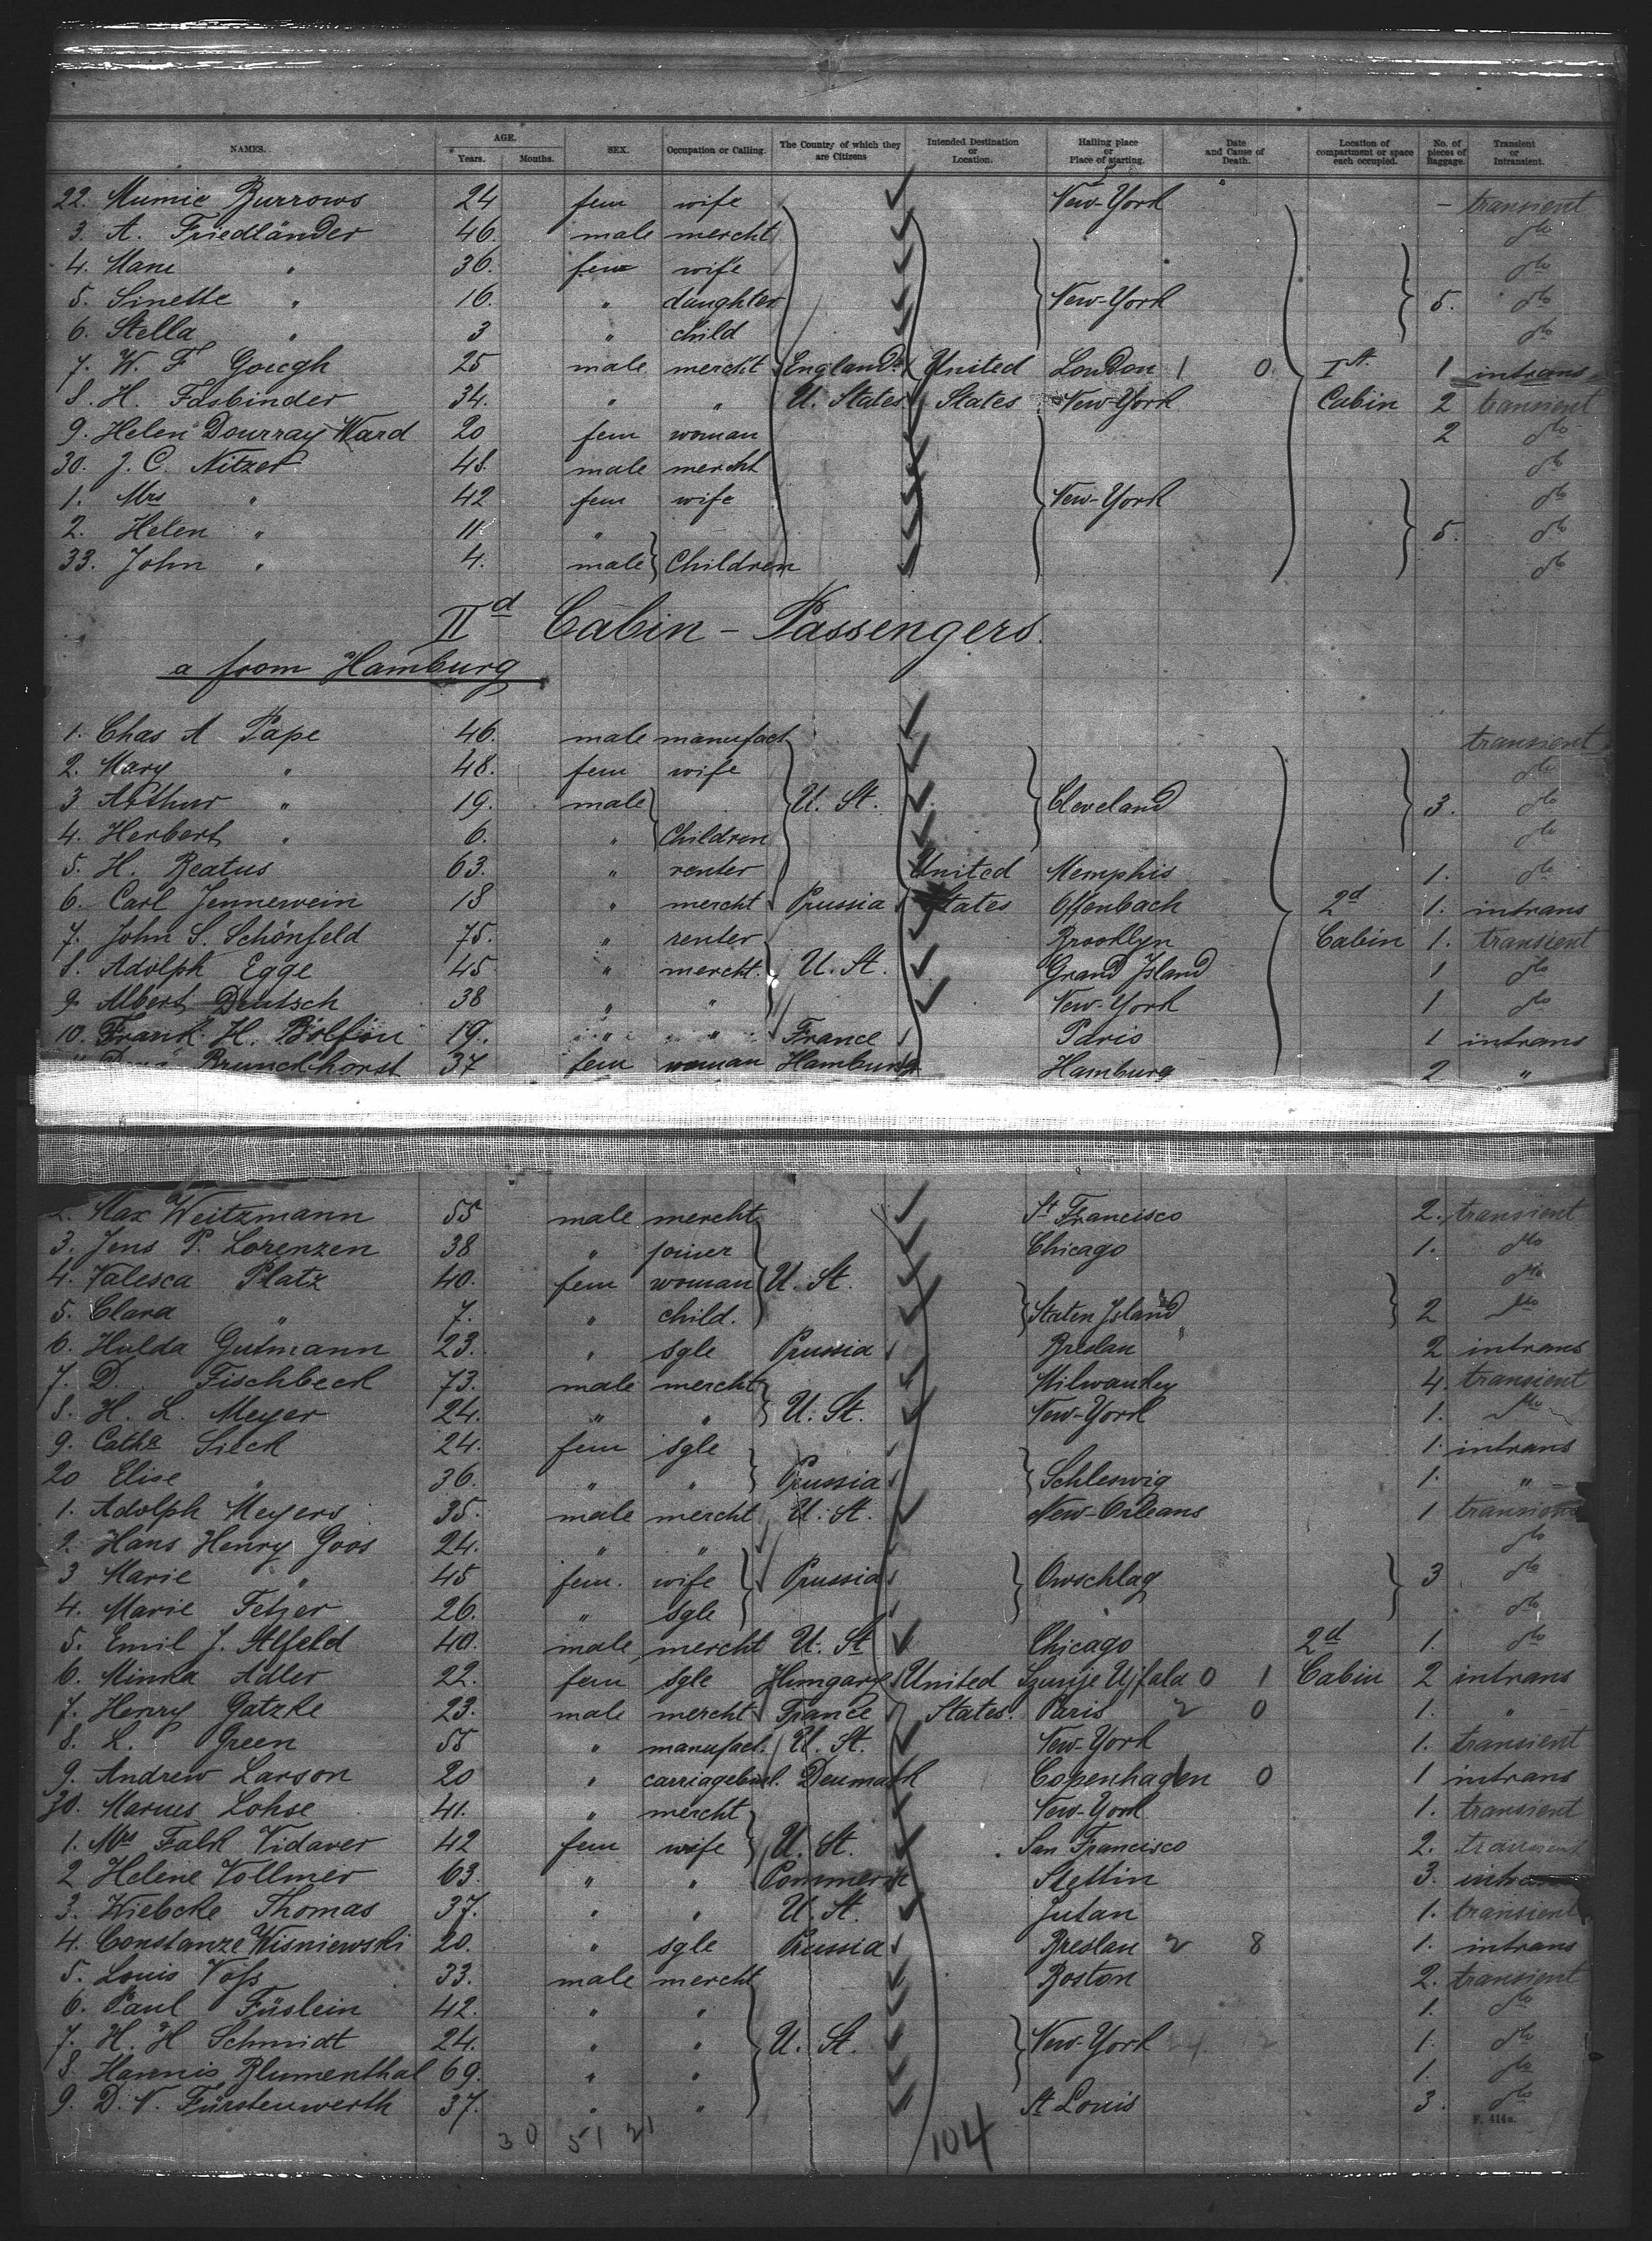 NAMES. AGE. Years. Months. SEX. Occupation or Calling. The Country of which they are Citizens Intended Destination or Location. Hailing place or Place of starting. Date and Cause of Death. Location of compartment or space each occupied. No. of pieces of Baggage. Transient or Intransient.
22. Mumie Burrows 24 fem wife New-York - transient
3. A. Friedländer 46. male mercht do
4. Mane " 36. fem wife do
5. Sinette " 16. " daughter New-York 5. do
6. Stella " 3 " child do
7. W. F Gougd 25 male mercht England United London 1 0 Ist 1 intrans
8. H. Fasbinder 34. " " U. States States New-York Cabin 2 transient
9. Helen Dourray Ward 20 fem woman 2 do
30. J. C. Nitzer 48. male mercht do
1. Mrs " 42 fem wife New-York do
2. Helen " 11. " 5. do
33. John " 4. male Children do
IId Cabin - Passengers.
a from Hamburg
1. Chas A Pape 46. male manufact transient
2. Mary " 48. fem wife do
3 Arthur " 19. male U. St. Cleveland 3. do
4. Herbert " 6. " Children do
5. H. Beatus 63. " renter United Memphis 1. do
6. Carl Jennewein 18 " mercht Prussia States Offenbach 2d 1. intrans
7. John S. Schönfeld 75. " renter Brooklyn Cabin 1. transient
8. Adolph Egge 45 " mercht. U. St. Grand Island 1 do
9. Albert Deutsch 38 " " New-York 1 do
10. Frank H. Bölfin 19. " " France Paris 1 intrans
Brunckhorst 37 fem woman Hamburg Hamburg 2 "
2. Max Weitzmann 55 male mercht St Francisco 2. transient
3. Jens P. Lorenzen 38 " joiner Chicago 1. do
4. Valesca Platz 40. fem woman U. St. do
5. Clara " 7. " child. Staten Island 2 do
6. Hulda Gutmann 23. " sgle Prussia Breslau 2 intrans
7. D. Fischbeck 73. male mercht Milwaukey 4. transient
8. H. L. Meyer 24. " " U. St. New-York 1. do
9. Cathe Sieck 24. fem sgle 1. intrans
20 Elise " 36. " " Prussia Schleswig 1. "
1. Adolph Meyers 35. male mercht U. St. New-Orleans 1 transient
2. Hans Henry Goos 24. " " do
3 Marie " 45 fem. wife Prussia Owschlag 3 do
4. Marie Fetzer 26. " sgle do
5. Emil J. Alfeld 40. male mercht U. St Chicago 2d 1. do
6. Minka Adler 22. fem sgle Hungary United Ujfala 0 1 Cabin 2 intrans
7. Henry Gatzke 23. male mercht France States. Paris 2 0 1. "
8. L. Green 55 " manufact. U. St. New-York 1. transient
9. Andrew Larson 20 " carriagebuil. Denmark Copenhagen 0 1 intrans
30. Marcus Lohse 41. " mercht New-York 1. transient
1. Mrs Falk Vidaver 42 fem wife U. St. San Francisco 2. transient
2 Helene Vollmer 63. " " Pommern Stettin 3. intrans
3. Wiebcke Thomas 37. " " U. St. Jutan 1. transient
4. Constanze Wisniewski 20. " sgle Prussia Breslau 2 8 1. intrans
5. Louis Voss 33. male mercht Boston 2. transient
6. Paul Füslein 42. " " 1. do
7. H. H Schmidt 24. " " U. St. New-York 1. do
8. Hannis Blumenthal 69. " " 1. do
9. D. N. Fürstenwerth 37. " " St Louis 3. do
F. 414a.
30 51 21 104